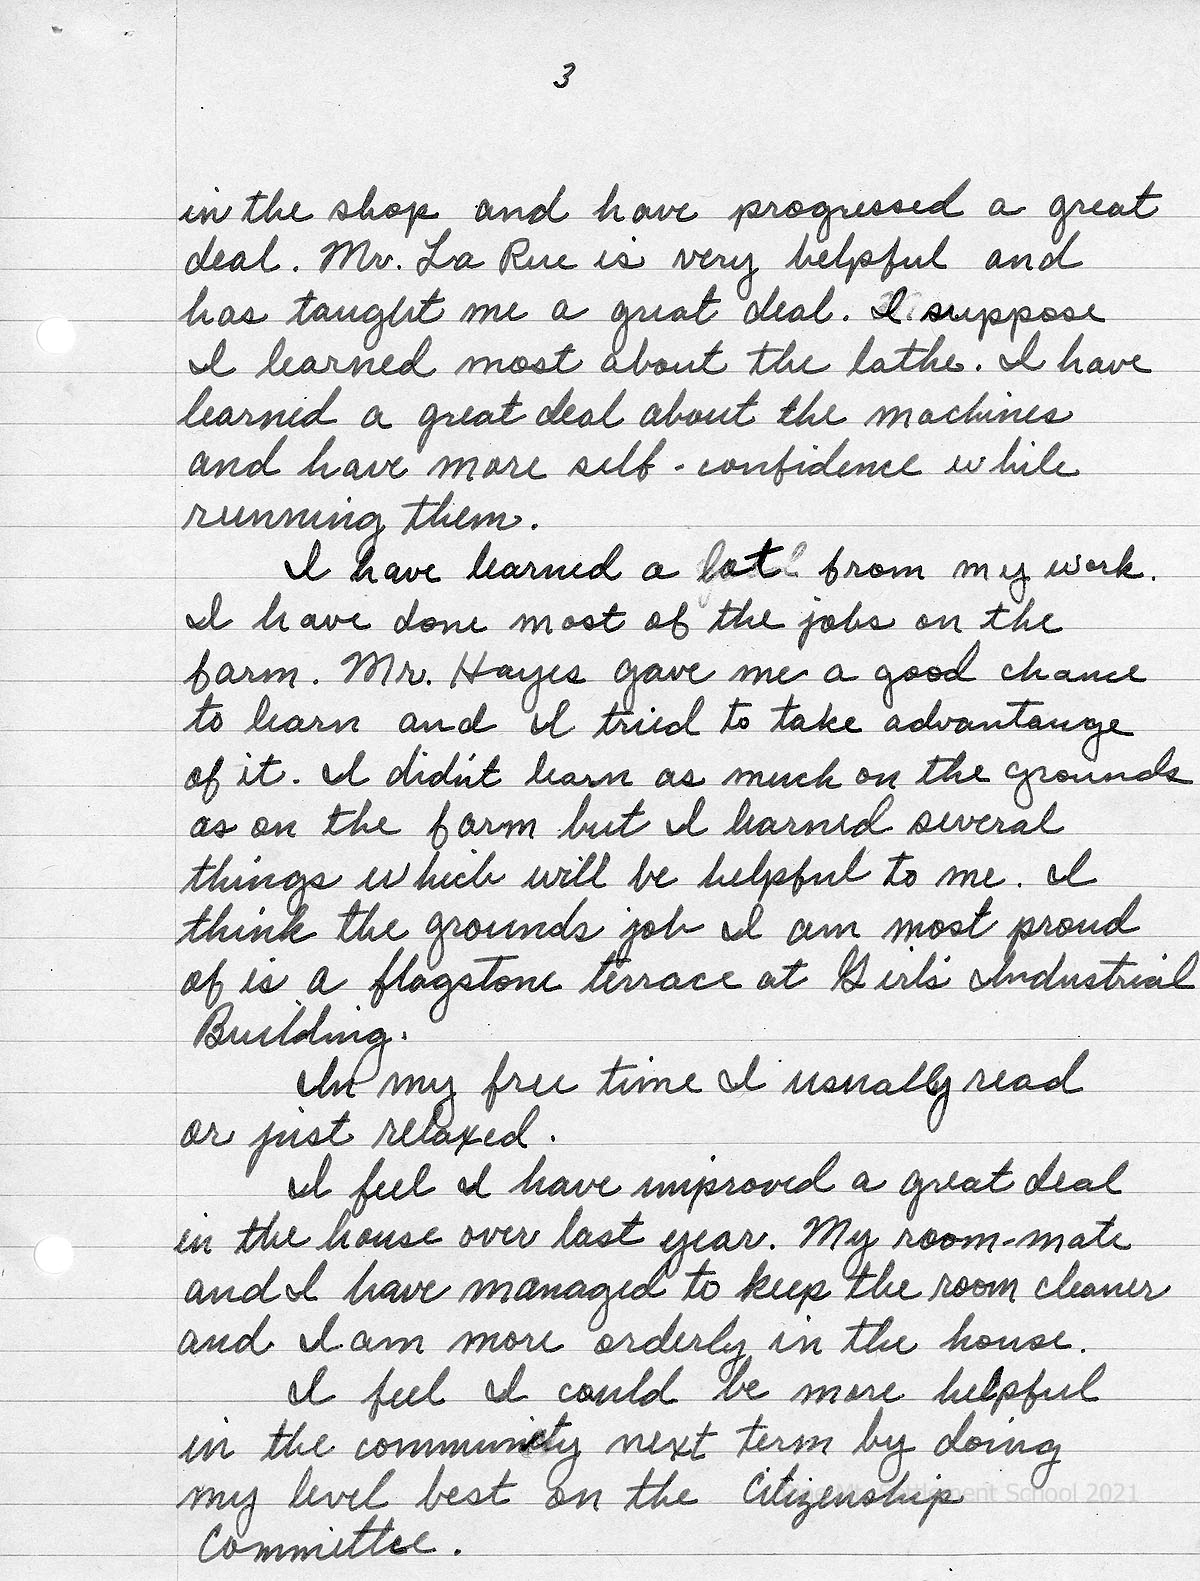 3
in the shop and have progressed a great
deal. Mr. La Rue is very helpful and
has taught me a great deal. I suppose
I learned most about the lathe. I have
learned a great deal about the machines
and have more self-confidence while
running them.
I have learned a lot from my work.
I have done most of the jobs on the
farm. Mr. Hayes gave me a good chance
to learn and I tried to take advantauge
of it. I didn't learn as much on the grounds
as on the farm but I learned several
things which will be helpful to me. I
think the grounds job I am most proud
of is a flagstone terrace at Girl's Industrial
Building.
In my free time I usually read
or just relaxed.
I feel I have improved a great deal
in the house over last year. My room-mate
and I have managed to keep the room cleaner
and I am more orderly in the house.
I feel I could be more helpful
in the community next term by doing
my level best on the Citizenship
Committee.
School 2021